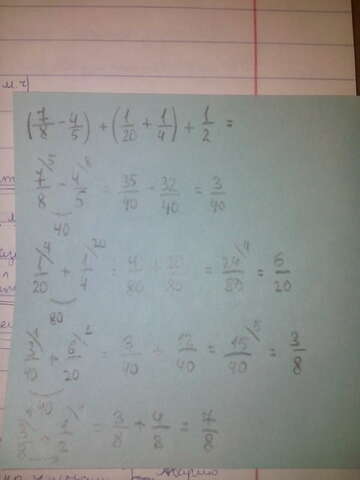 (7/8 - 4/5) + (1/20 + 1/4) + 1/2 =
7/8 /5 - 4/5 /8 = 35/40 - 32/40 = 3/40
40
1/20 /4 + 1/4 /20 = 4/80 + 20/80 = 24/80 /4 = 6/20
80
3/40 + 6/20 /2 = 3/40 + 12/40 = 15/40 /5 = 3/8
40
= 3/8 + 4/8 = 7/8